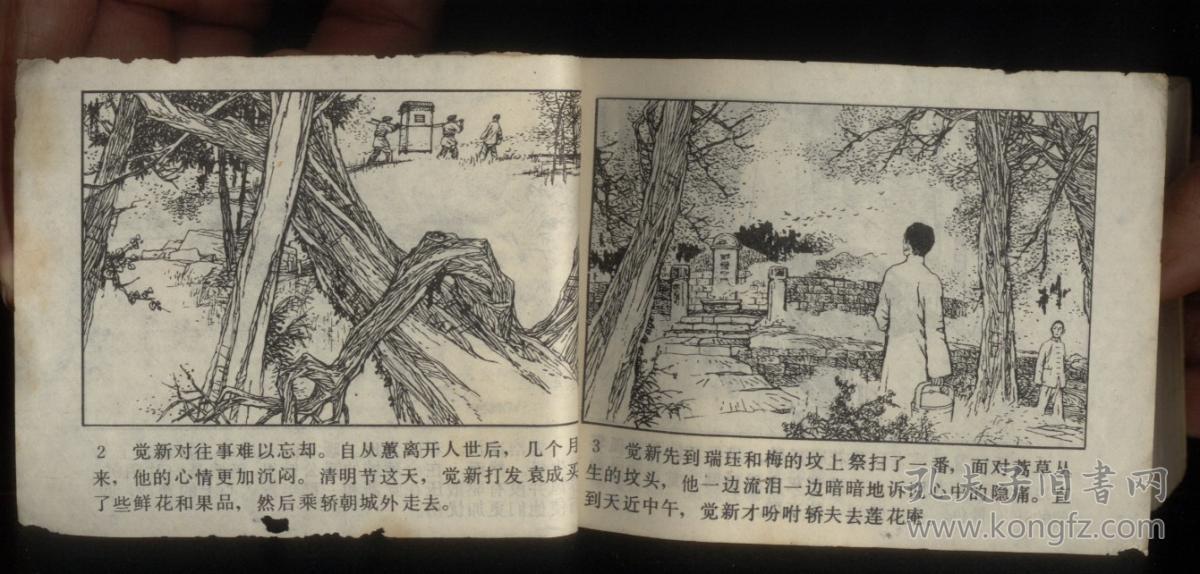 2 觉新对往事难以忘却。自从蕙离开人世后，几个月
来，他的心情更加沉闷。清明节这天，觉新打发袁成买
了些鲜花和果品，然后乘轿朝城外走去。
3 觉新先到瑞珏和梅的坟上祭扫了一番，面对荒草丛
生的坟头，他一边流泪一边暗暗地诉说心中的隐痛。直
到天近中午，觉新才吩咐轿夫去莲花庵
孔夫子旧书网
www.kongfz.com